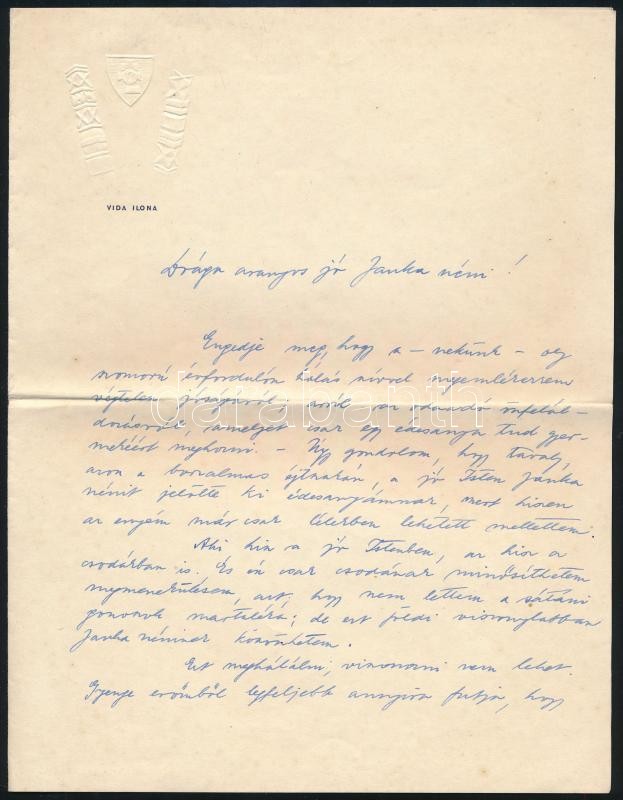 VIDA ILONA
Drága aranyos jó Janka néni!
Engedje meg, hogy a – nekünk – oly
szomorú évfordulón hálás szívvel megemlékezzem
végtelen jóságáról, arról az odaadó önfelál-
dozásról, amelyet csak egy édesanya tud gyer-
mekéért meghozni. – Úgy gondolom, hogy tavaly,
azon a borzalmas éjtszakán, a jó Isten Janka
nénit jelölte ki édesanyámnak, mert hiszen
az enyém már csak lélekben lehetett mellettem.
Aki hisz a jó Istenben, az hisz a
csodákban is. És én csak csodának minősíthetem
megmenekülésem, azt, hogy nem lettem a sátáni
gonoszok martaléka; de ezt földi viszonylatban
Janka néninek köszönhetem.
Ezt meghálálni, viszonozni nem lehet.
Gyenge erőmből legfeljebb annyira futja, hogy
darabanth